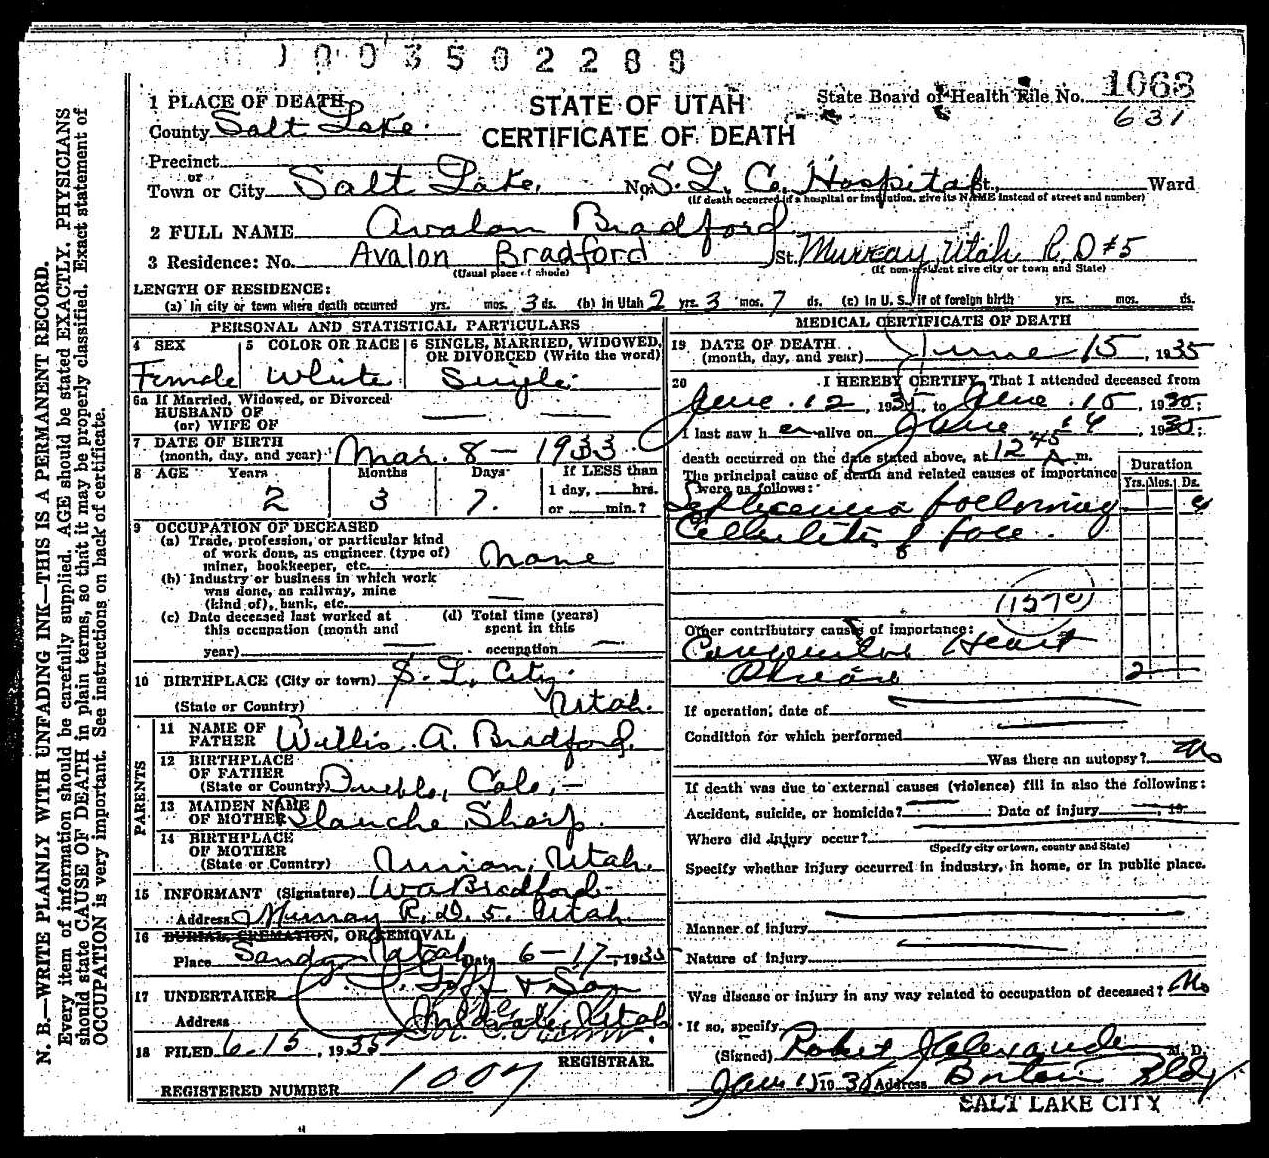 1003502288
1 PLACE OF DEATH
STATE OF UTAH
CERTIFICATE OF DEATH
State Board of Health File No. 1063
631
County Salt Lake.
Precinct
or
Town or City Salt Lake, No. S. L. Co. Hospital St., Ward
(If death occurred if a hospital or institution, give its NAME instead of street and number)
2 FULL NAME Avalon Bradford
3 Residence: No. Avalon Bradford St. Murray Utah R.D #5
(Usual place of abode) (If non-resident give city or town and State)
LENGTH OF RESIDENCE:
(a) In city or town where death occurred yrs. mos. 3 ds. (b) In Utah 2 yrs. 3 mos. 7 ds. (c) In U. S., if of foreign birth yrs. mos. ds.
PERSONAL AND STATISTICAL PARTICULARS
4 SEX 5 COLOR OR RACE 6 SINGLE, MARRIED, WIDOWED, OR DIVORCED (Write the word)
Female White Single
6a If Married, Widowed, or Divorced
HUSBAND OF
(or) WIFE OF
7 DATE OF BIRTH
(month, day, and year) Mar. 8 - 1933
8 AGE Years Months Days If LESS than
1 day, hrs.
2 3 7. or min.?
9 OCCUPATION OF DECEASED
(a) Trade, profession, or particular kind
of work done, as engineer (type of)
miner, bookkeeper, etc. None
(b) Industry or business in which work
was done, as railway, mine
(kind of), bank, etc. —
(c) Date deceased last worked at
this occupation (month and
year) —
(d) Total time (years)
spent in this
occupation —
10 BIRTHPLACE (City or town) S. L. City
(State or Country) Utah.
PARENTS
11 NAME OF
FATHER Willis A. Bradford.
12 BIRTHPLACE
OF FATHER
(State or Country) Pueblo, Colo. —
13 MAIDEN NAME
OF MOTHER Blanche Sharp.
14 BIRTHPLACE
OF MOTHER
(State or Country) Utah.
15 INFORMANT (Signature) W A Bradford
Address Murray R. D. 5. Utah.
16 BURIAL, CREMATION, OR REMOVAL
Place Sandy Utah Date 6 - 17 -, 1935
17 UNDERTAKER Goff & Son
Address Midvale, Utah
18 FILED 6-15, 1935
REGISTRAR.
REGISTERED NUMBER 1007
MEDICAL CERTIFICATE OF DEATH
19 DATE OF DEATH
(month, day, and year) June 15, 1935
20 I HEREBY CERTIFY, That I attended deceased from
June 12, 1935, to June 15, 1935;
I last saw her alive on June 14, 1935;
death occurred on the date stated above, at 12 45 A m.
The principal cause of death and related causes of importance
were as follows:
Duration
Yrs. Mos. Ds.
Septicemia following
Cellulitis of face.
Other contributory causes of importance:
Congenital Heart
Disease 2
If operation, date of
Condition for which performed
Was there an autopsy? No
If death was due to external causes (violence) fill in also the following:
Accident, suicide, or homicide? Date of injury, 19
Where did injury occur?
(Specify city or town, county and State)
Specify whether injury occurred in industry, in home, or in public place.
Manner of injury
Nature of injury
Was disease or injury in any way related to occupation of deceased? No
If so, specify
(Signed) Robert J Alexander M. D.
15 1935 Address Boston Bldg
SALT LAKE CITY
N. B.—WRITE PLAINLY WITH UNFADING INK—THIS IS A PERMANENT RECORD.
Every item of information should be carefully supplied. AGE should be stated EXACTLY. PHYSICIANS
should state CAUSE OF DEATH in plain terms, so that it may be properly classified. Exact statement of
OCCUPATION is very important. See instructions on back of certificate.